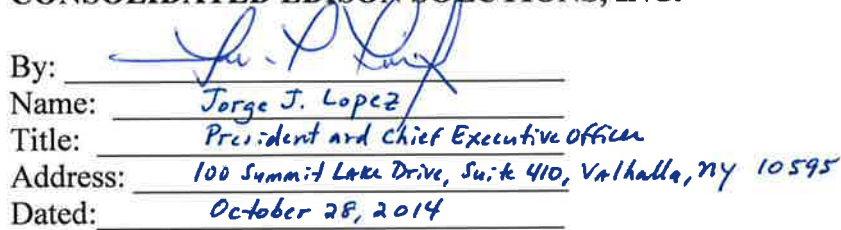 CONSOLIDATED EDISON SOLUTIONS, INC.
By:
Name: Jorge J. Lopez
Title: President and Chief Executive Officer
Address: 100 Summit Lake Drive, Suite 410, Valhalla, NY 10595
Dated: October 28, 2014